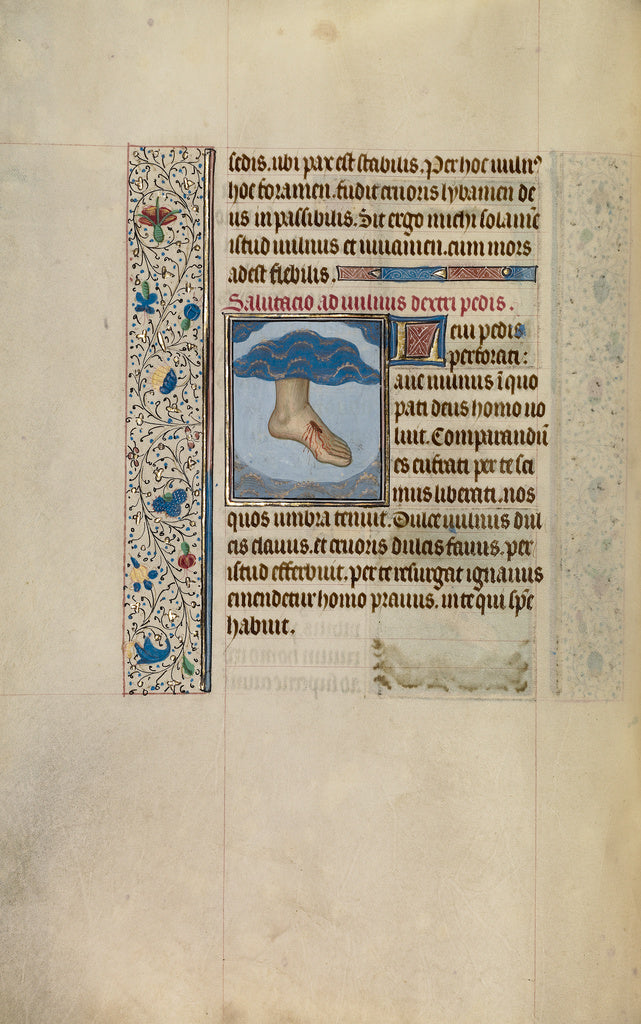 sedis. ubi pax est stabilis. Per hoc uuln9
hoc foramen. fudit cruoris lybamen de
us inpassibilis. Sit ergo michi solamē
istud uulnus et iuuamen. cum mors
adest flebilis.
Salutacio ad uulnus dextri pedis.
eui pedis
perforati:
aue uulnus ī quo
pati deus homo uo
luit. Comparandū
es
per te sci
mus liberati. nos
quos umbra tenuit. Dulce uulnus dul
cis clauus. et cruoris dulcis fauus. per
istud efferbuit. per te resurgat ignauus
emendetur homo prauus. in te qui spē
habuit.